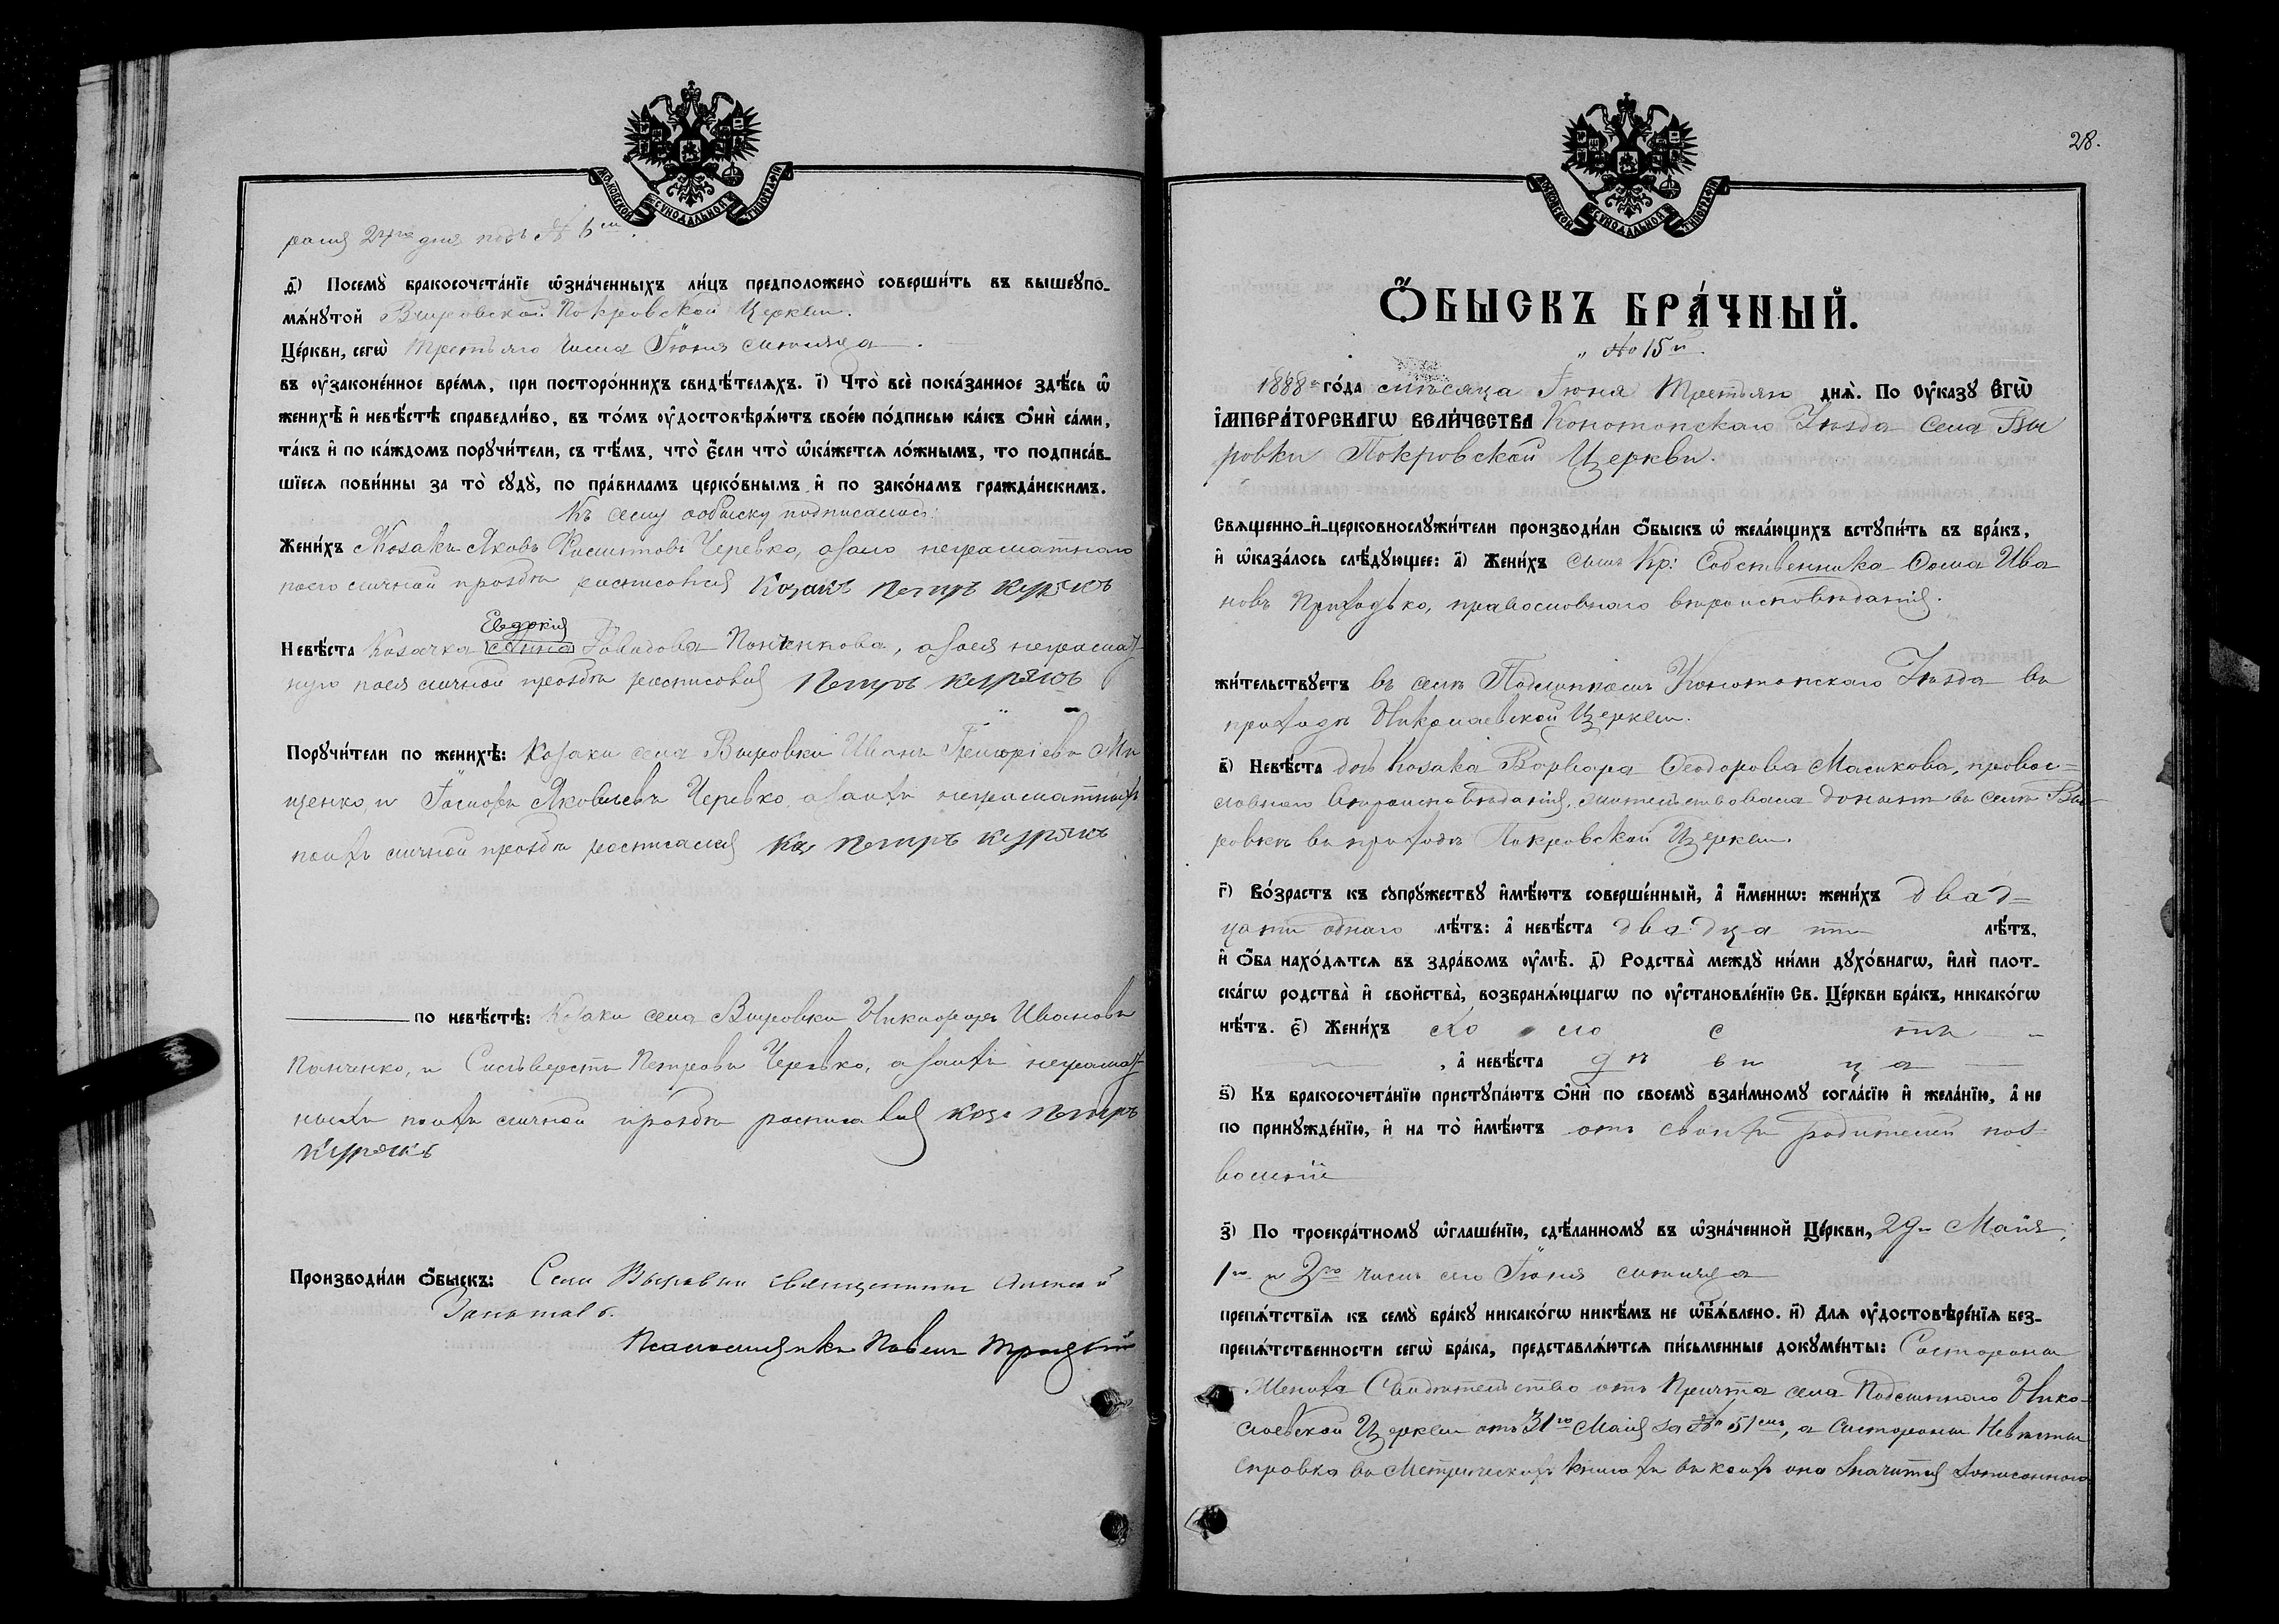 МОСКОВСКОЙ СѴНОДАЛЬНОЙ ТИПОГРАФІИ
раля 24го дня подъ № 6мъ.
ѳ҃) Посемꙋ̀ бракосочета́нїе ѡ҆зна́ченныхъ ли́цъ предположено̀ соверши́ть въ вышеꙋпо-
мѧ́нꙋтой Вировской Покровской Церкви.
Це́ркви, сегѡ̀ третьяго числа Іюня месяца
въ ᲂу҆законе́нное вре́мѧ, при посторо́ннихъ свидѣ́телѧхъ. і҃) Что̀ всѐ пока́занное здѣ́сь ѡ҆
женихѣ̀ и҆ невѣ́стѣ справедли́во, въ то́мъ ᲂу҆достовѣрѧ́ютъ свое́ю по́дписью ка́къ ѻ҆нѝ са́ми,
та́къ и҆ по ка́ждомъ порꙋчи́тели, съ тѣ́мъ, что̀ є҆́сли что̀ ѡ҆ка́жется ло́жнымъ, то подписа́в-
шїесѧ пови́нны за то̀ сꙋдꙋ̀, по пра́виламъ церко́внымъ и҆ по зако́намъ гражда́нскимъ.
Къ сему обыску подписались:
Жени́хъ Козакъ Яковъ Черевко, а за него неграматнаго
по его личной прозбѣ росписовся Козакъ Петръ Курякъ
Евдокия
Невѣ́ста Козачка Анна Давидова, а за нея неграмат-
ную по ея личной прозбѣ росписовся Петръ Курякъ
Порꙋчи́тели по женихѣ̀: Козаки села Вировки Иванъ Григоріевъ Ми
щенко, и Яковлевъ Черевко, а за нихъ неграматныхъ
по ихъ личной прозбѣ росписался Коз Петръ Курякъ
по невѣ́стѣ: Козаки села Вировки Никифоръ Ивановъ
Панченко, и Сильверстъ Петровъ Черевко, а за нихъ неграмат-
ныхъ по ихъ личной прозбѣ росписався Коза Петръ
Курякъ
Производи́ли ѻ҆́быскъ: Села Вировки священникъ Алексѣй
Псаломщикъ Павелъ Троцкій
28.
МОСКОВСКОЙ СѴНОДАЛЬНОЙ ТИПОГРАФІИ
Ѻ҆́БЫСКЪ БРА́ЧНЫЙ.
№ 15й.
1888го го́да месяца Іюня Третьяго днѧ̀. По ᲂу҆ка́зꙋ Є҆ГѠ̀
И҆МПЕРА́ТОРСКАГѠ ВЕЛИ́ЧЕСТВА Конотопскаго Уезда села Ви
ровки Покровской Церкви.
Свѧще́нно-и҆-церковнослꙋжи́тели производи́ли ѻ҆́быскъ ѡ҆ жела́ющихъ встꙋпи́ть въ бра́къ,
и҆ ѡ҆каза́лось слѣ́дꙋющее: а҃) Жени́хъ сынъ Кр: Собственника Фома Ива
новъ Приходько, православнаго вероисповеданія.
жи́тельствꙋетъ въ селѣ Подлипномъ Конотопскаго Уезда въ
приходѣ Николаевской Церкви.
в҃) Невѣ́ста дочь козака Варвара Феодорова, правос=
лавнаго вероисповеданія, жительствовала донынѣ въ селѣ Ви
ровкѣ въ приходѣ Покровской Церкви.
г҃) Во́зрастъ къ сꙋпрꙋ́жествꙋ и҆мѣ́ютъ соверше́нный, а҆ и҆́меннѡ: жени́хъ двад=
цати однаго лѣ́тъ: а҆ невѣ́ста двадцати лѣ́тъ,
и҆ ѻ҆́ба нахо́дѧтсѧ въ здра́вомъ ᲂу҆мѣ̀. д҃) Родства̀ междꙋ̀ ни́ми дꙋхо́внагѡ, и҆лѝ плот-
ска́гѡ родства̀ и҆ свойства̀, возбранѧ́ющагѡ по ᲂу҆становле́нїю Св. Це́ркви бра́къ, никако́гѡ
нѣ́тъ. є҃) Жени́хъ холостъ
, а҆ невѣ́ста дѣвица
ѕ҃) Къ бракосочета́нїю пристꙋпа́ютъ ѻ҆нѝ по своемꙋ̀ взаи́мномꙋ согла́сїю и҆ жела́нїю, а҆ не
по принꙋжде́нїю, и҆ на то̀ и҆мѣ́ютъ отъ своихъ родителей поз-
воленіе
з҃) По троекра́тномꙋ ѡ҆глаше́нїю, сдѣ́ланномꙋ въ ѡ҆зна́ченной Це́ркви, 29го Маія,
1го и 3го числъ Іюня месяца
препѧ́тствїѧ къ семꙋ̀ бра́кꙋ никако́гѡ никѣ́мъ не ѡ҆б̾ѧ́влено. и҃) Длѧ ᲂу҆достовѣре́нїѧ без-
препѧ́тственности сегѡ̀ бра́ка, представлѧ́ютсѧ пи́сьменные докꙋме́нты: Состороны
Жениха Свидѣтельство отъ Причта села Подлипнаго Нико-
лаевской Церкви отъ 31го Маія за № 51мъ, а состороны Невѣсты
справка въ Метрическихъ книгахъ въ коихъ она значится записанною